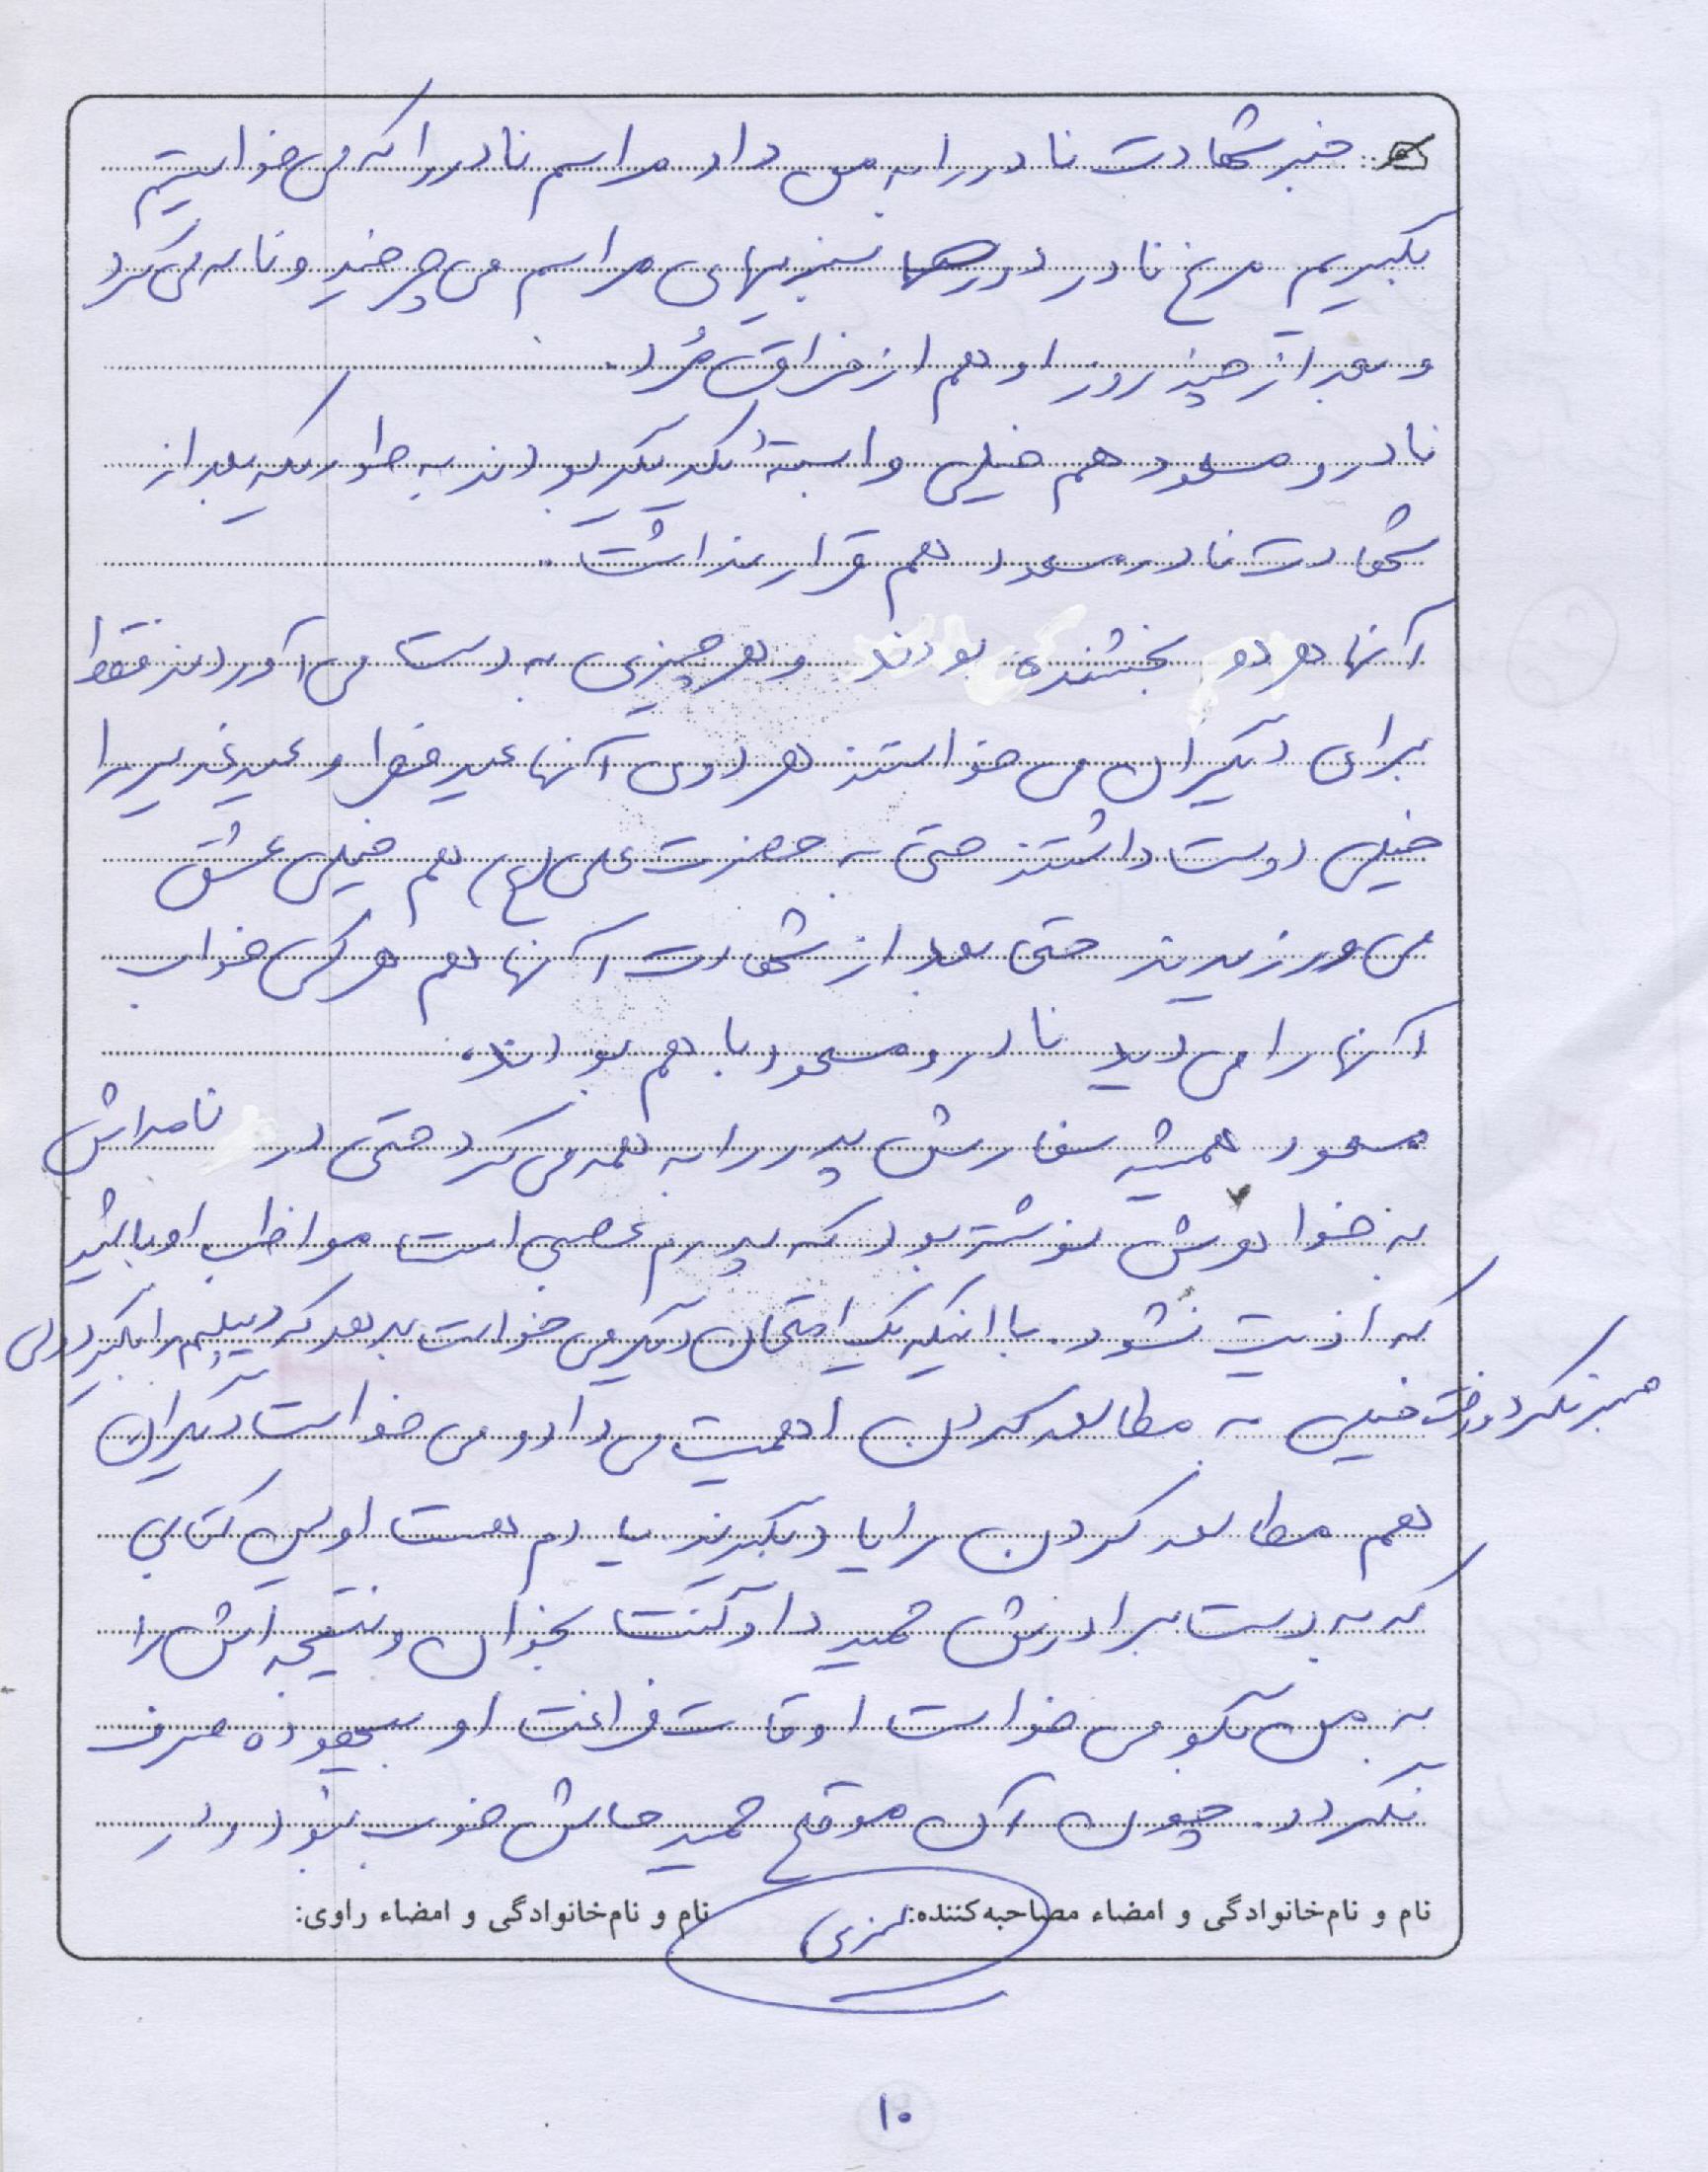 خبر شهادت نادر را به من داد مراسم نادر را که می خواستیم
بگیریم مرغ نادر دور سبزیهای مراسم می چرخید و ناله می کرد
و بعد از چند روز او هم از فراق مُرد.
نادر و مسعود هم خیلی وابستهٔ یکدیگر بودند به طوریکه بعد از
شهادت نادر مسعود هم قرار نداشت.
آنها هر دو بخشنده بودند و هر چیزی به دست می آوردند فقط
برای دیگران می خواستند هر دوی آنها عید فطر و عید غدیر را
خیلی دوست داشتند حتی به حضرت علی (ع) هم خیلی عشق
می ورزیدند حتی بعد از شهادت آنها هم هر کس خواب
آنها را می دید نادر و مسعود با هم بودند.
مسعود همیشه سفارش پدر را به همه می کرد حتی در نامه اش
به خواهرش نوشته بود که پدرم عصبی است مواظب او باشید
که اذیت نشود. با اینکه یک امتحان دیگر می خواست بدهد که دیپلم را بگیرد ولی
صبر نکرد و رفت خیلی به مطالعه کردن اهمیت می داد و می خواست دیگران
هم مطالعه کردن را یاد بگیرند یادم هست اولین کتابی
که به دست برادرش حمید داد گفت بخوان و نتیجه اش را
به من بگو می خواست اوقات فراغت او بیهوده صرف
نگردد. چون آن موقع حمید حالش خوب نبود و در
نام و نام‌خانوادگی و امضاء مصاحبه‌کننده: نام و نام‌خانوادگی و امضاء راوی:
۱۰